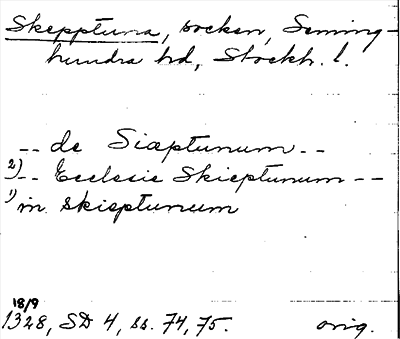 Skepptuna, socken, Seming-
hundra hd, Stockh. l.
-- de Siæptunum --
2) -- Ecclesie Skieptunum --
1) in skieptunum
18/9
1328, SD 4, ss. 74, 75. orig.